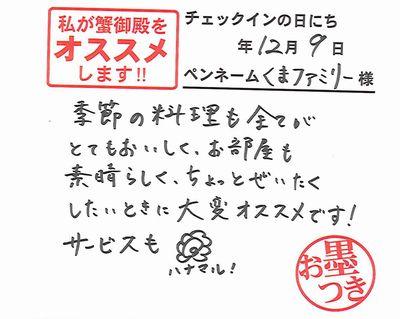 私が蟹御殿を
オススメ
します!!
チェックインの日にち
年12月9日
ペンネームくまファミリー様
季節の料理も全てが
とてもおいしく、お部屋も
素晴らしく、ちょっとぜいたく
したいときに大変オススメです!
サービスも
ハナマル!
お墨つき